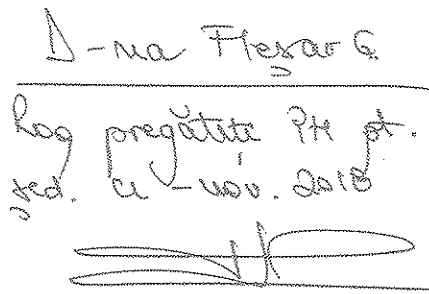 D-na Fleșar G.
Rog pregătite PH pt.
șed. CL - nov. 2018